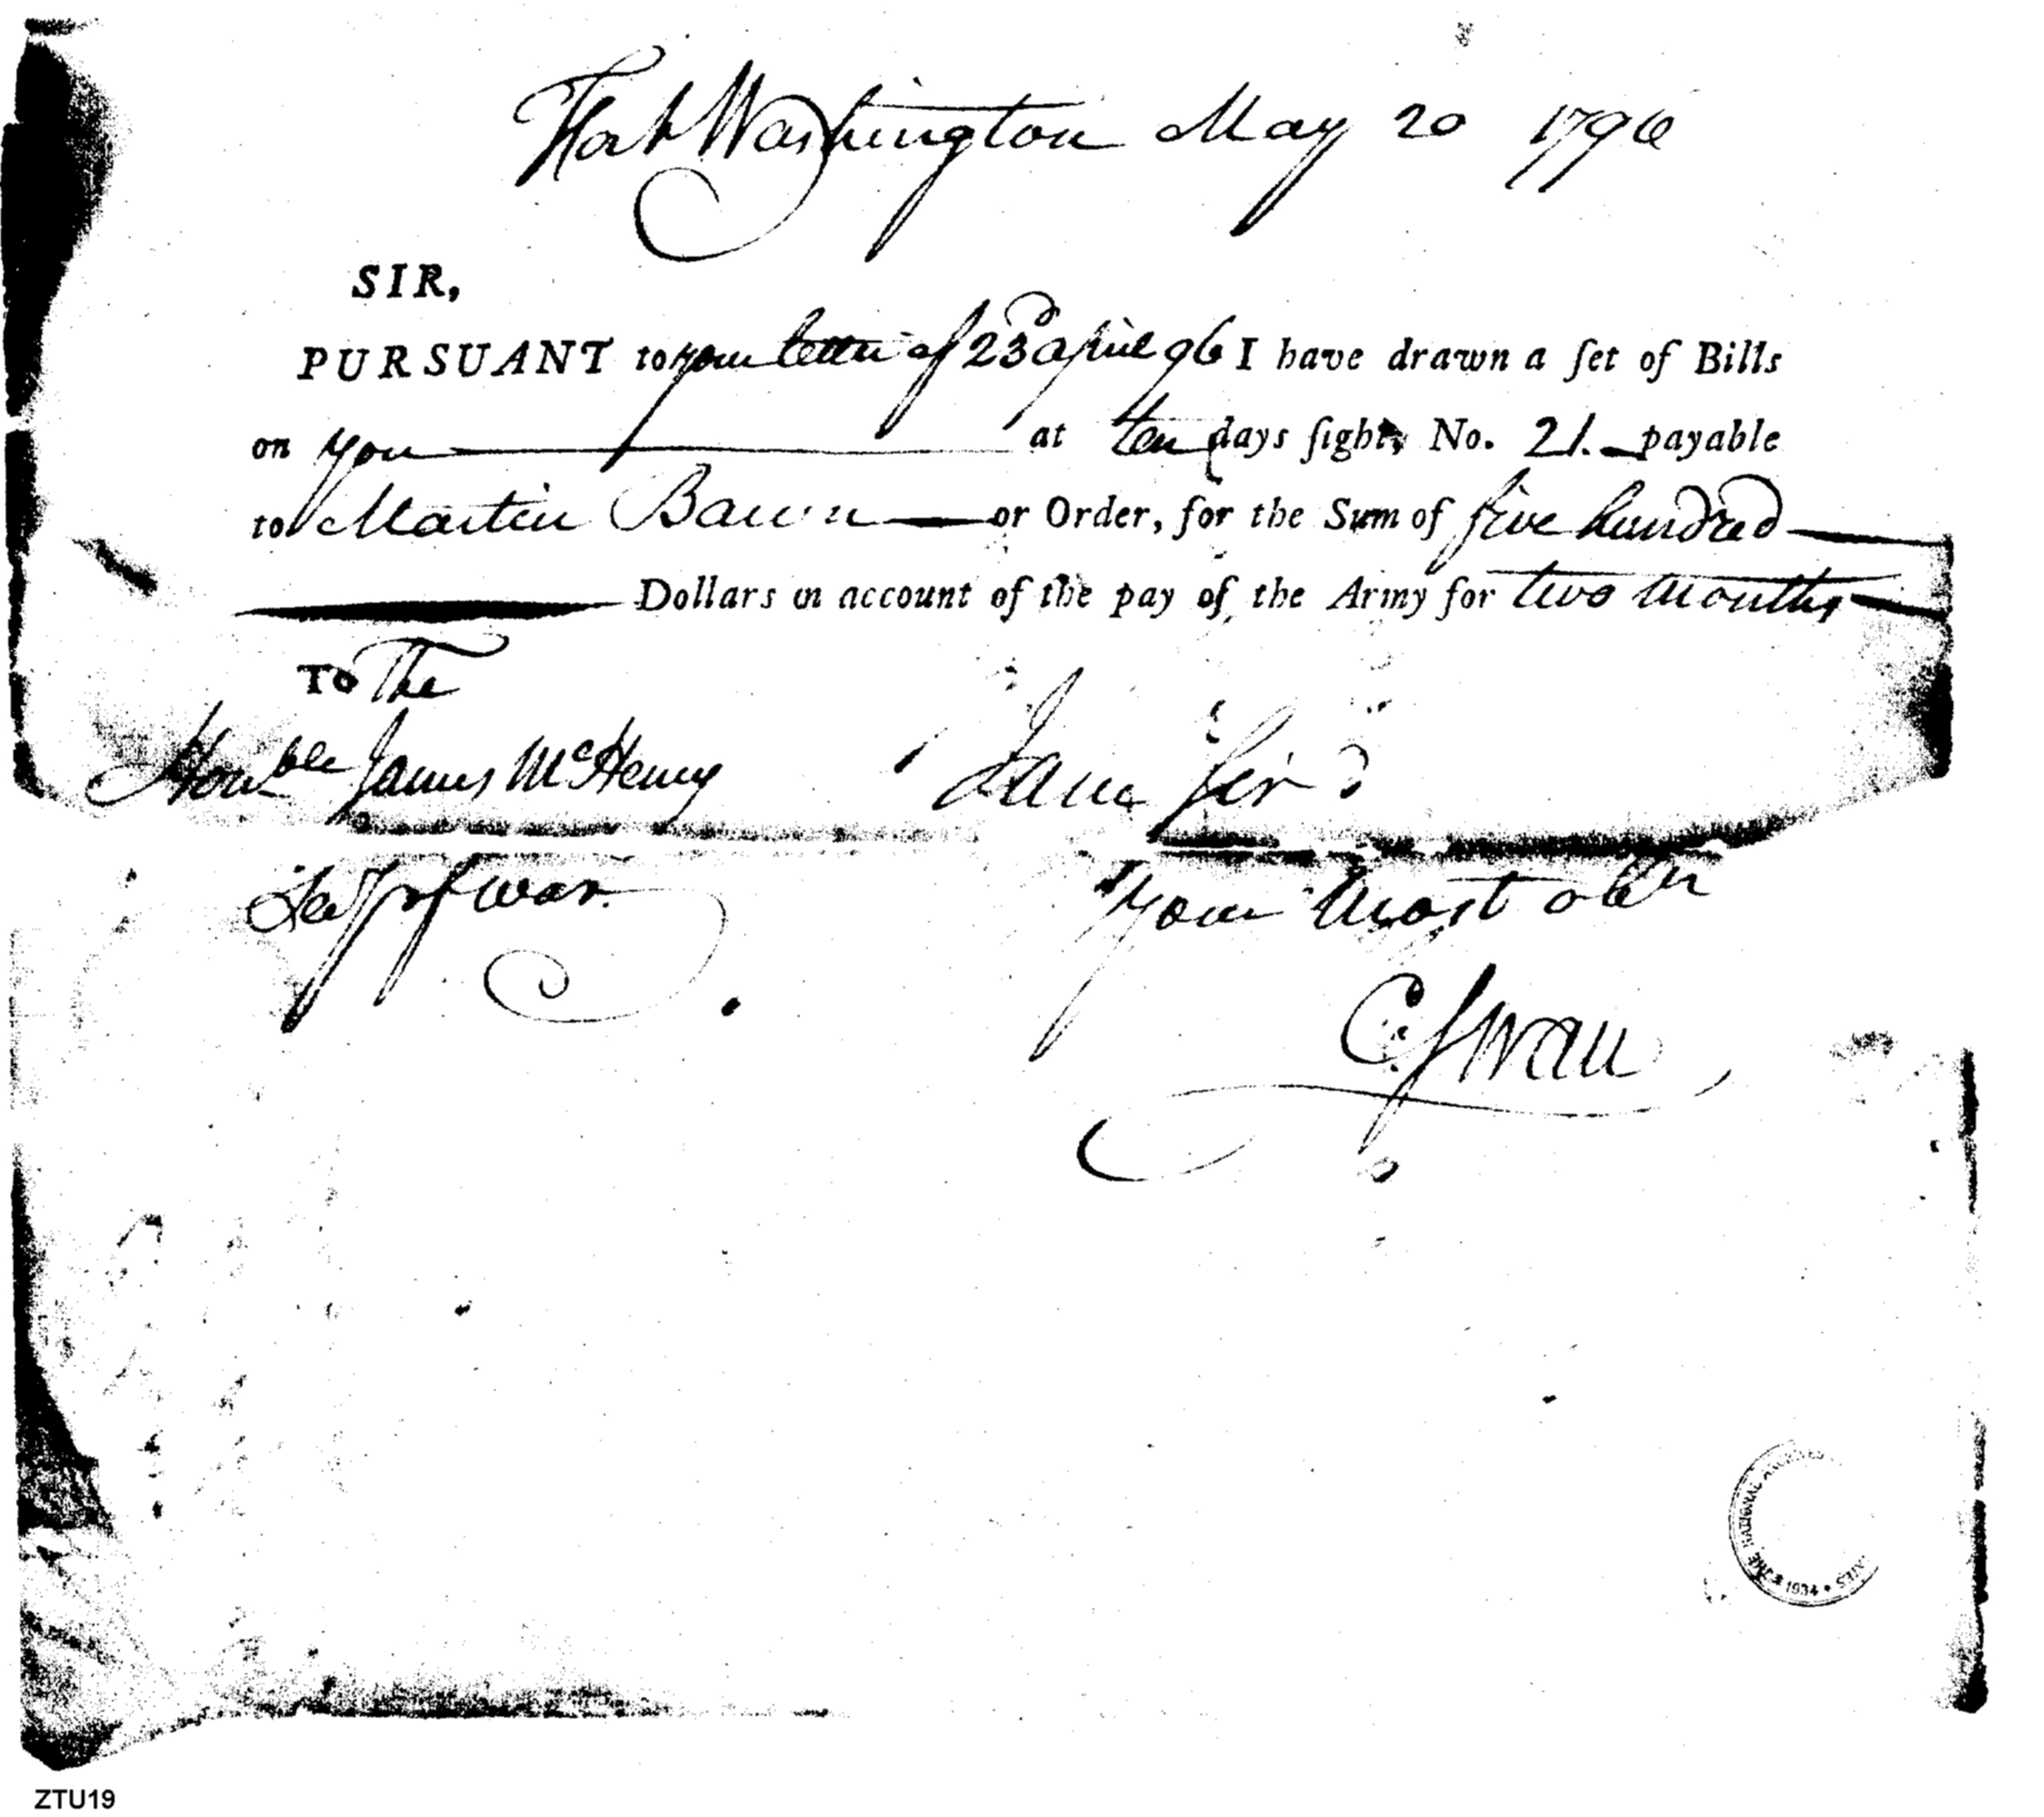 Fort Washington May 20 1796
SIR,
PURSUANT to your letter of 23d april 96 I have drawn a ſet of Bills
on you at ten days ſight, No. 21. payable
to Martin or Order, for the Sum of five hundred
Dollars on account of the pay of the Army for two months
To The
Honble James McHenry I am Sir
Secy of war. Your most obt
C. Swan
THE NATIONAL ARCHIVES * 1934 *
ZTU19